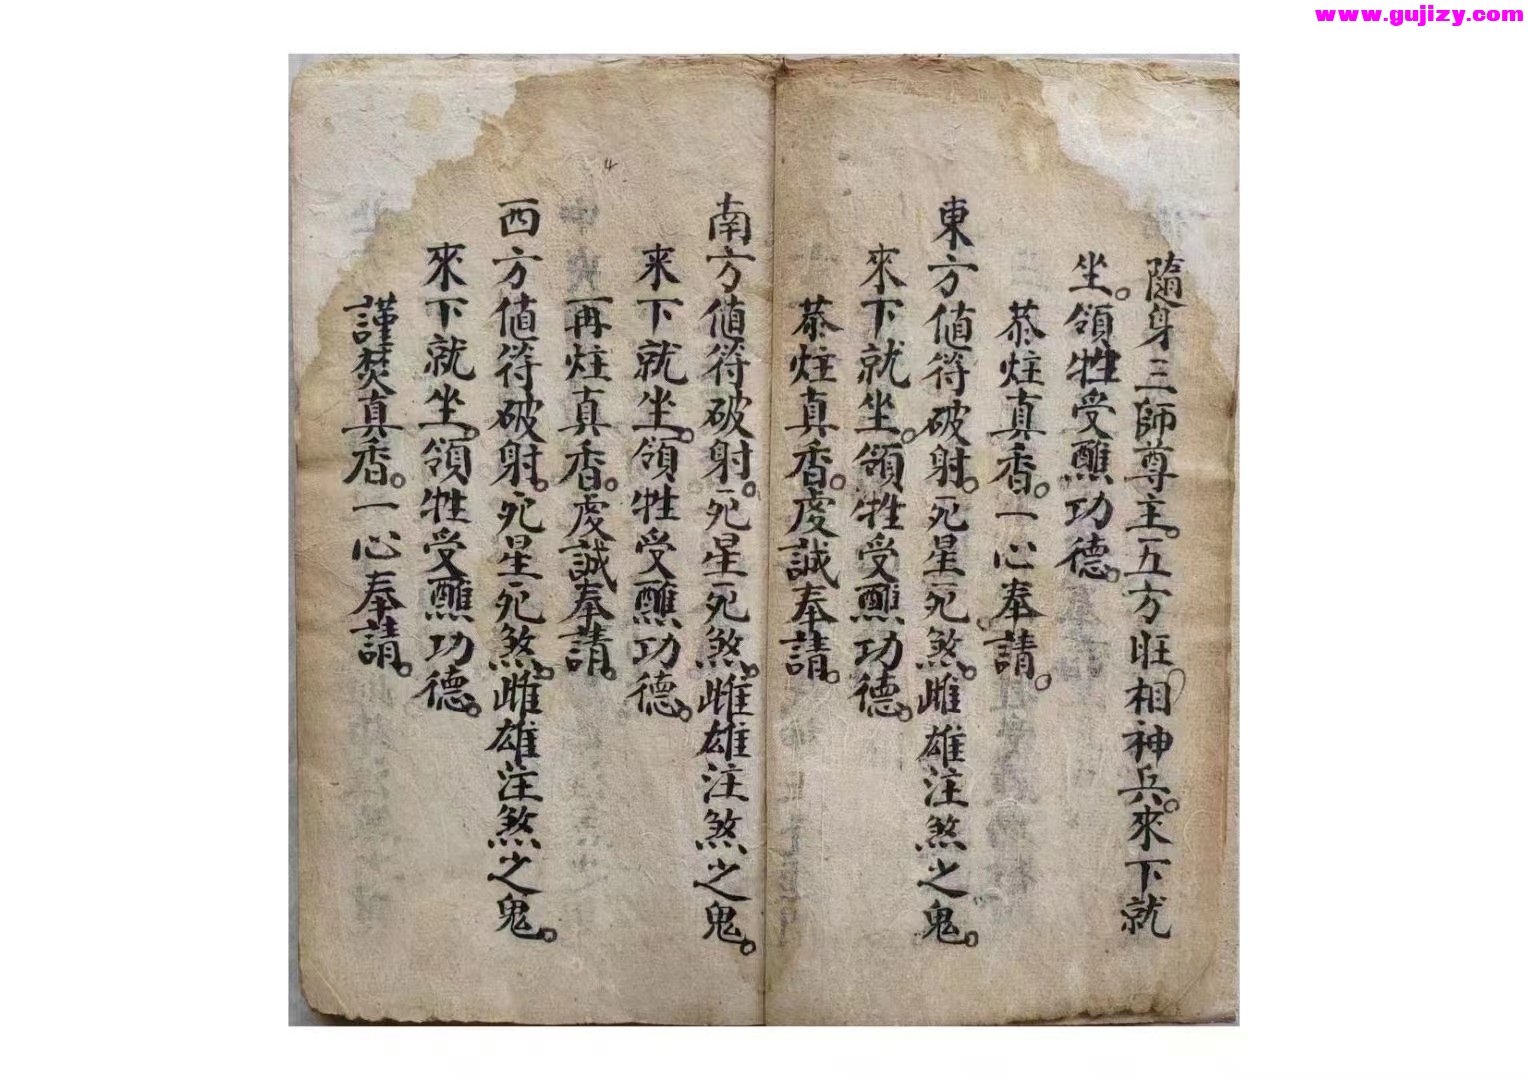 www.gujizy.com
隨身三師尊主。五方旺相神兵。來下就
坐。領牲受醮功德。
恭炷真香。一心奉請。
東方値符破射。死星死煞。雌雄注煞之鬼。
來下就坐。領牲受醮功德。
恭炷真香。虔誠奉請。
南方値符破射。死星死煞。雌雄注煞之鬼。
来下就坐。領牲受醮功德。
再炷真香。虔誠奉請。
西方値符破射。死星死煞。雌雄注煞之鬼。
來下就坐。領牲受醮功德。
謹焚真香。一心奉請。